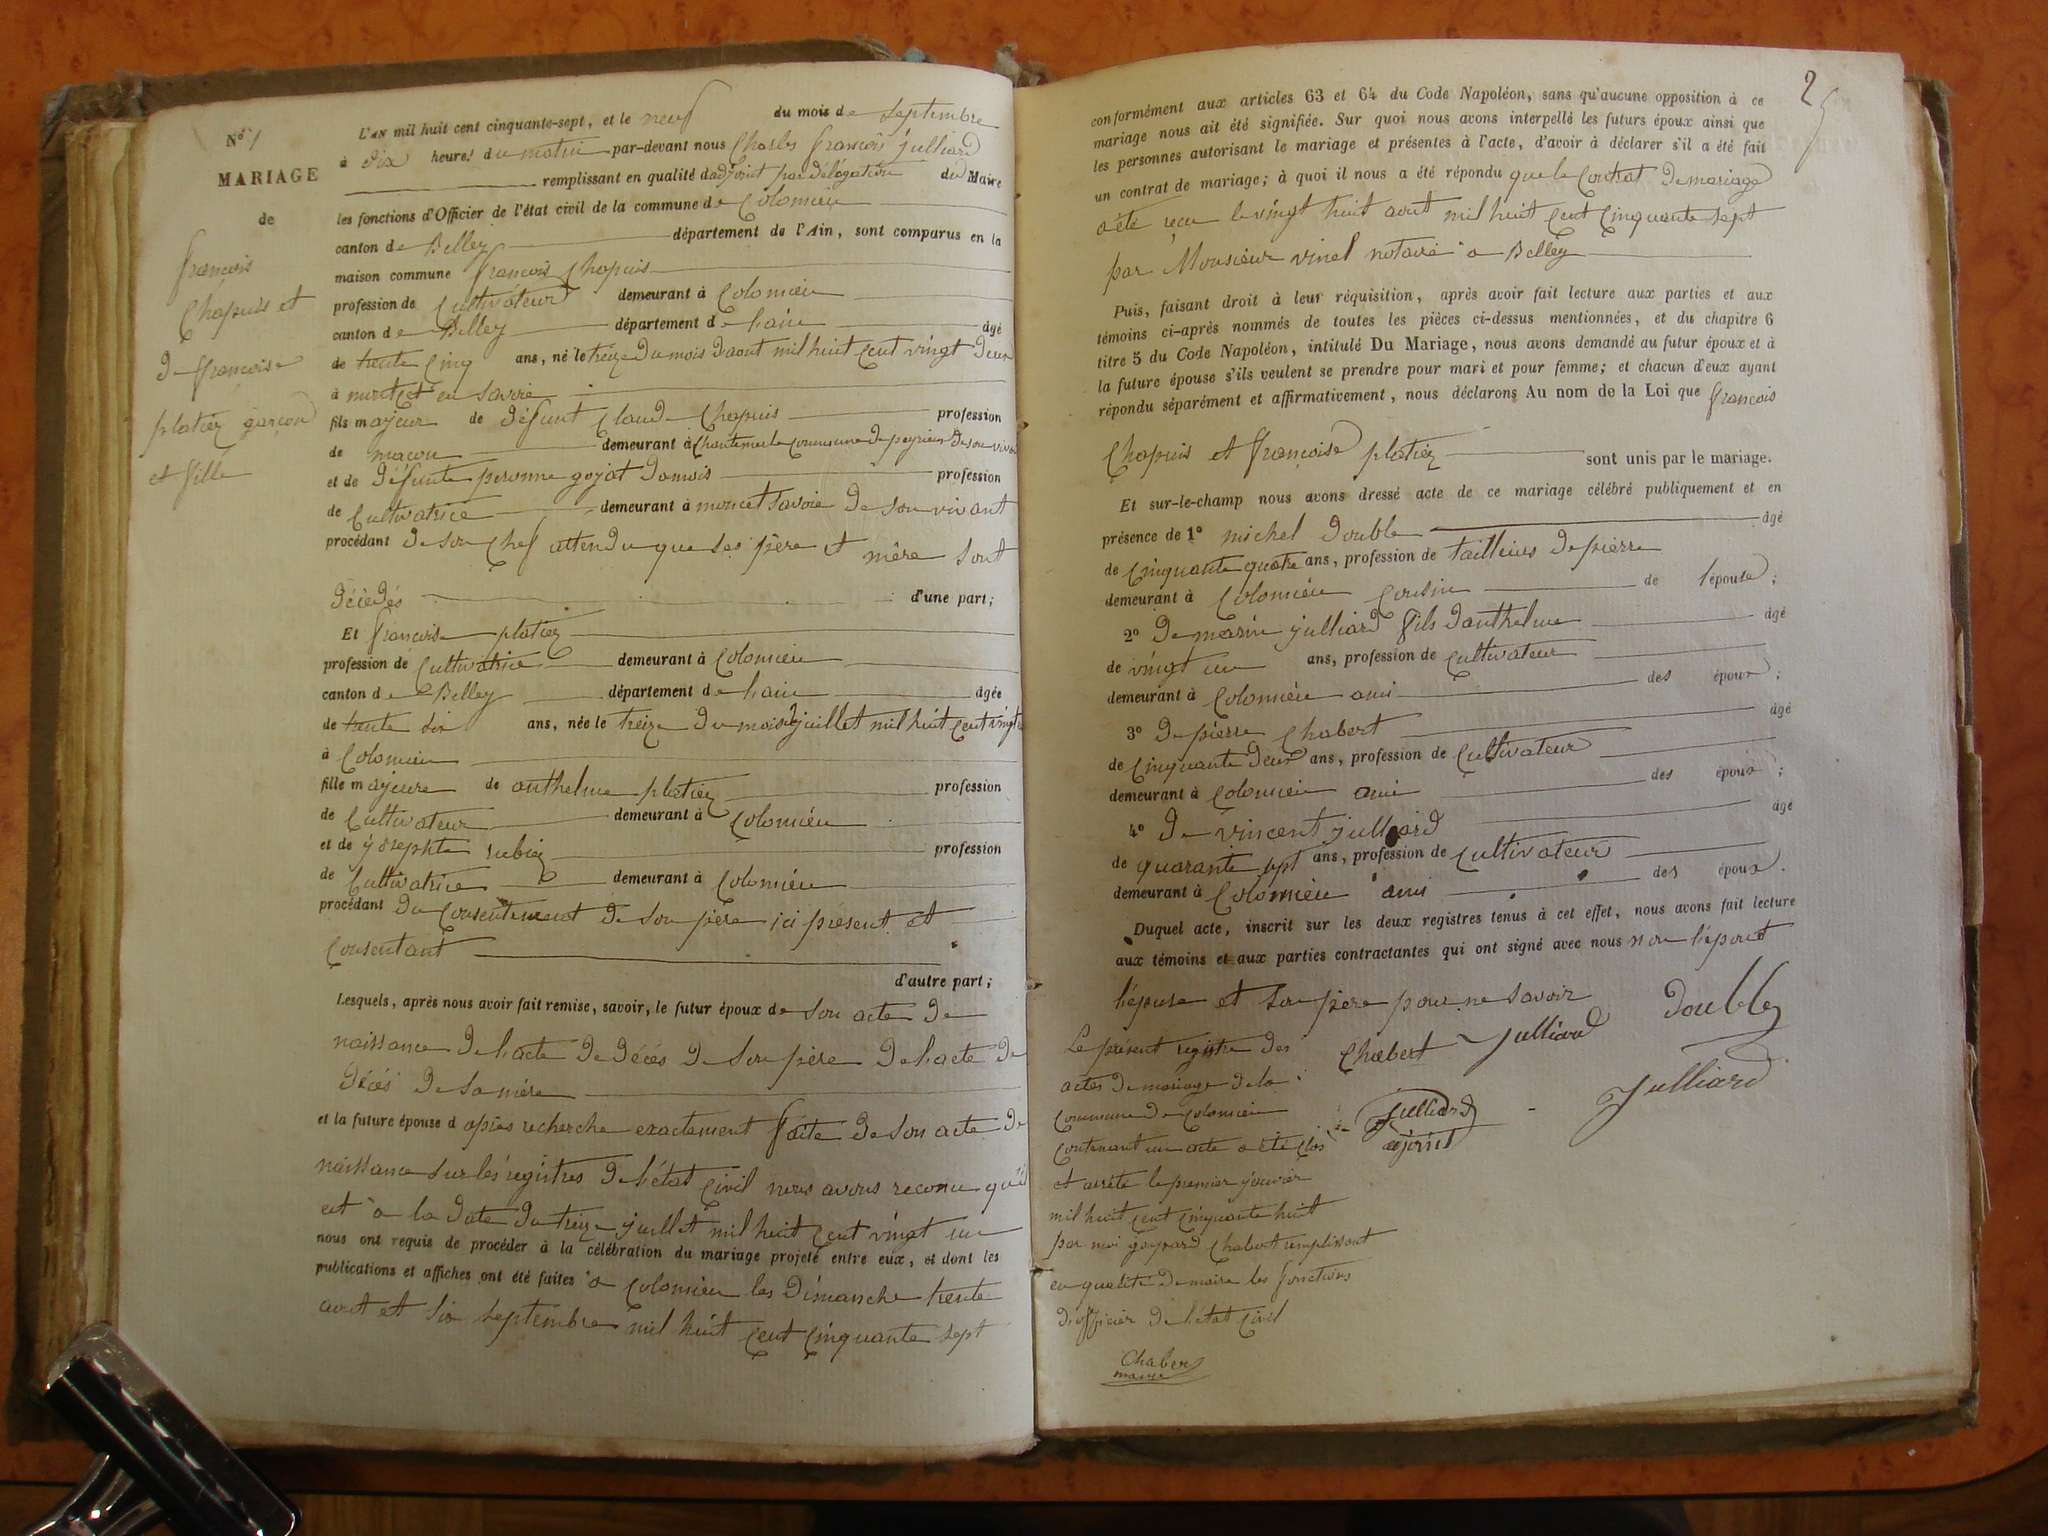 N° 1
MARIAGE
de
francois
Chapuis et
de francoise
platiez garcon
et fille
L'AN mil huit cent cinquante-sept, et le neuf du mois de septembre
à dix heures du matin par-devant nous Charles francois julliard
remplissant en qualité dadjoint par délégation du Maire
les fonctions d'Officier de l'état civil de la commune de Colomieu
canton de Belley département de l'Ain, sont comparus en la
maison commune francois Chapuis
profession de Cultivateur demeurant à Colomieu
canton de Belley département de lain âgé
de trente cinq ans, né le treize du mois daout mil huit cent vingt deux
à en savoie
fils majeur de défunt Claude Chapuis profession
de macon demeurant à Chantemerle commune de peyrieu de son vivant
et de défunte peronne goyat domois profession
de Cultivatrice demeurant à savoie de son vivant
procédant de son chef attendu que ses père et mère sont
décédés d'une part;
Et francoise platiez
profession de Cultivatrice demeurant à Colomieu
canton de Belley département de lain âgée
de trente six ans, née le treize du mois de juillet mil huit cent vingt un
à Colomieu
fille majeure de anthelme platiez profession
de Cultivateur demeurant à Colomieu
et de josephte rubiez profession
de Cultivatrice demeurant à Colomieu
procédant du consentement de son père ici présent et
consentant
d'autre part;
Lesquels, après nous avoir fait remise, savoir, le futur époux de son acte de
naissance de l'acte de décés de son père de l'acte de
décés de sa mère
et la future épouse d après recherche exactement faite de son acte de
naissance sur les registres de l'état civil nous avons reconu qu'il
est à la date du treize juillet mil huit cent vingt un
nous ont requis de procéder à la célébration du mariage projeté entre eux, et dont les
publications et affiches ont été faites à Colomieu les dimanche trente
aout et six septembre mil huit cent cinquante sept
2
conformément aux articles 63 et 64 du Code Napoléon, sans qu'aucune opposition à ce
mariage nous ait été signifiée. Sur quoi nous avons interpellé les futurs époux ainsi que
les personnes autorisant le mariage et présentes à l'acte, d'avoir à déclarer s'il a été fait
un contrat de mariage; à quoi il nous a été répondu que le contrat de mariage
a été reçu le vingt huit aout mil huit cent cinquante sept
par Monsieur vinel notaire a Belley
Puis, faisant droit à leur réquisition, après avoir fait lecture aux parties et aux
témoins ci-après nommés de toutes les pièces ci-dessus mentionnées, et du chapitre 6
titre 5 du Code Napoléon, intitulé Du Mariage, nous avons demandé au futur époux et à
la future épouse s'ils veulent se prendre pour mari et pour femme; et chacun d'eux ayant
répondu séparément et affirmativement, nous déclarons Au nom de la Loi que francois
Chapuis et françoise platiez sont unis par le mariage.
Et sur-le-champ nous avons dressé acte de ce mariage célébré publiquement et en
présence de 1° michel double âgé
de cinquante quatre ans, profession de tailleurs de pierre
demeurant à Colomieu cousin de lépouse;
2° de marin julliard fils danthelme âgé
de vingt un ans, profession de Cultivateur
demeurant à Colomieu ami des époux;
3° de pierre Chabert âgé
de cinquante deux ans, profession de Cultivateur
demeurant à Colomieu ami des époux;
4° de vincent julliard âgé
de quarante sept ans, profession de Cultivateur
demeurant à Colomieu amis des époux.
Duquel acte, inscrit sur les deux registres tenus à cet effet, nous avons fait lecture
aux témoins et aux parties contractantes qui ont signé avec nous non l'époux
l'épouse et son père pour ne savoir
Chabert Julliard Double
Julliard
adjoint
Julliard
Le présent registre des
actes de mariage de la
Commune de Colomieu
contenant un acte a été clos
et arrêté le premier janvier
mil huit cent cinquante huit
par moi gaspard Chabert remplissant
en qualité de maire les fonctions
d'officier de l'état civil
Chabert
maire